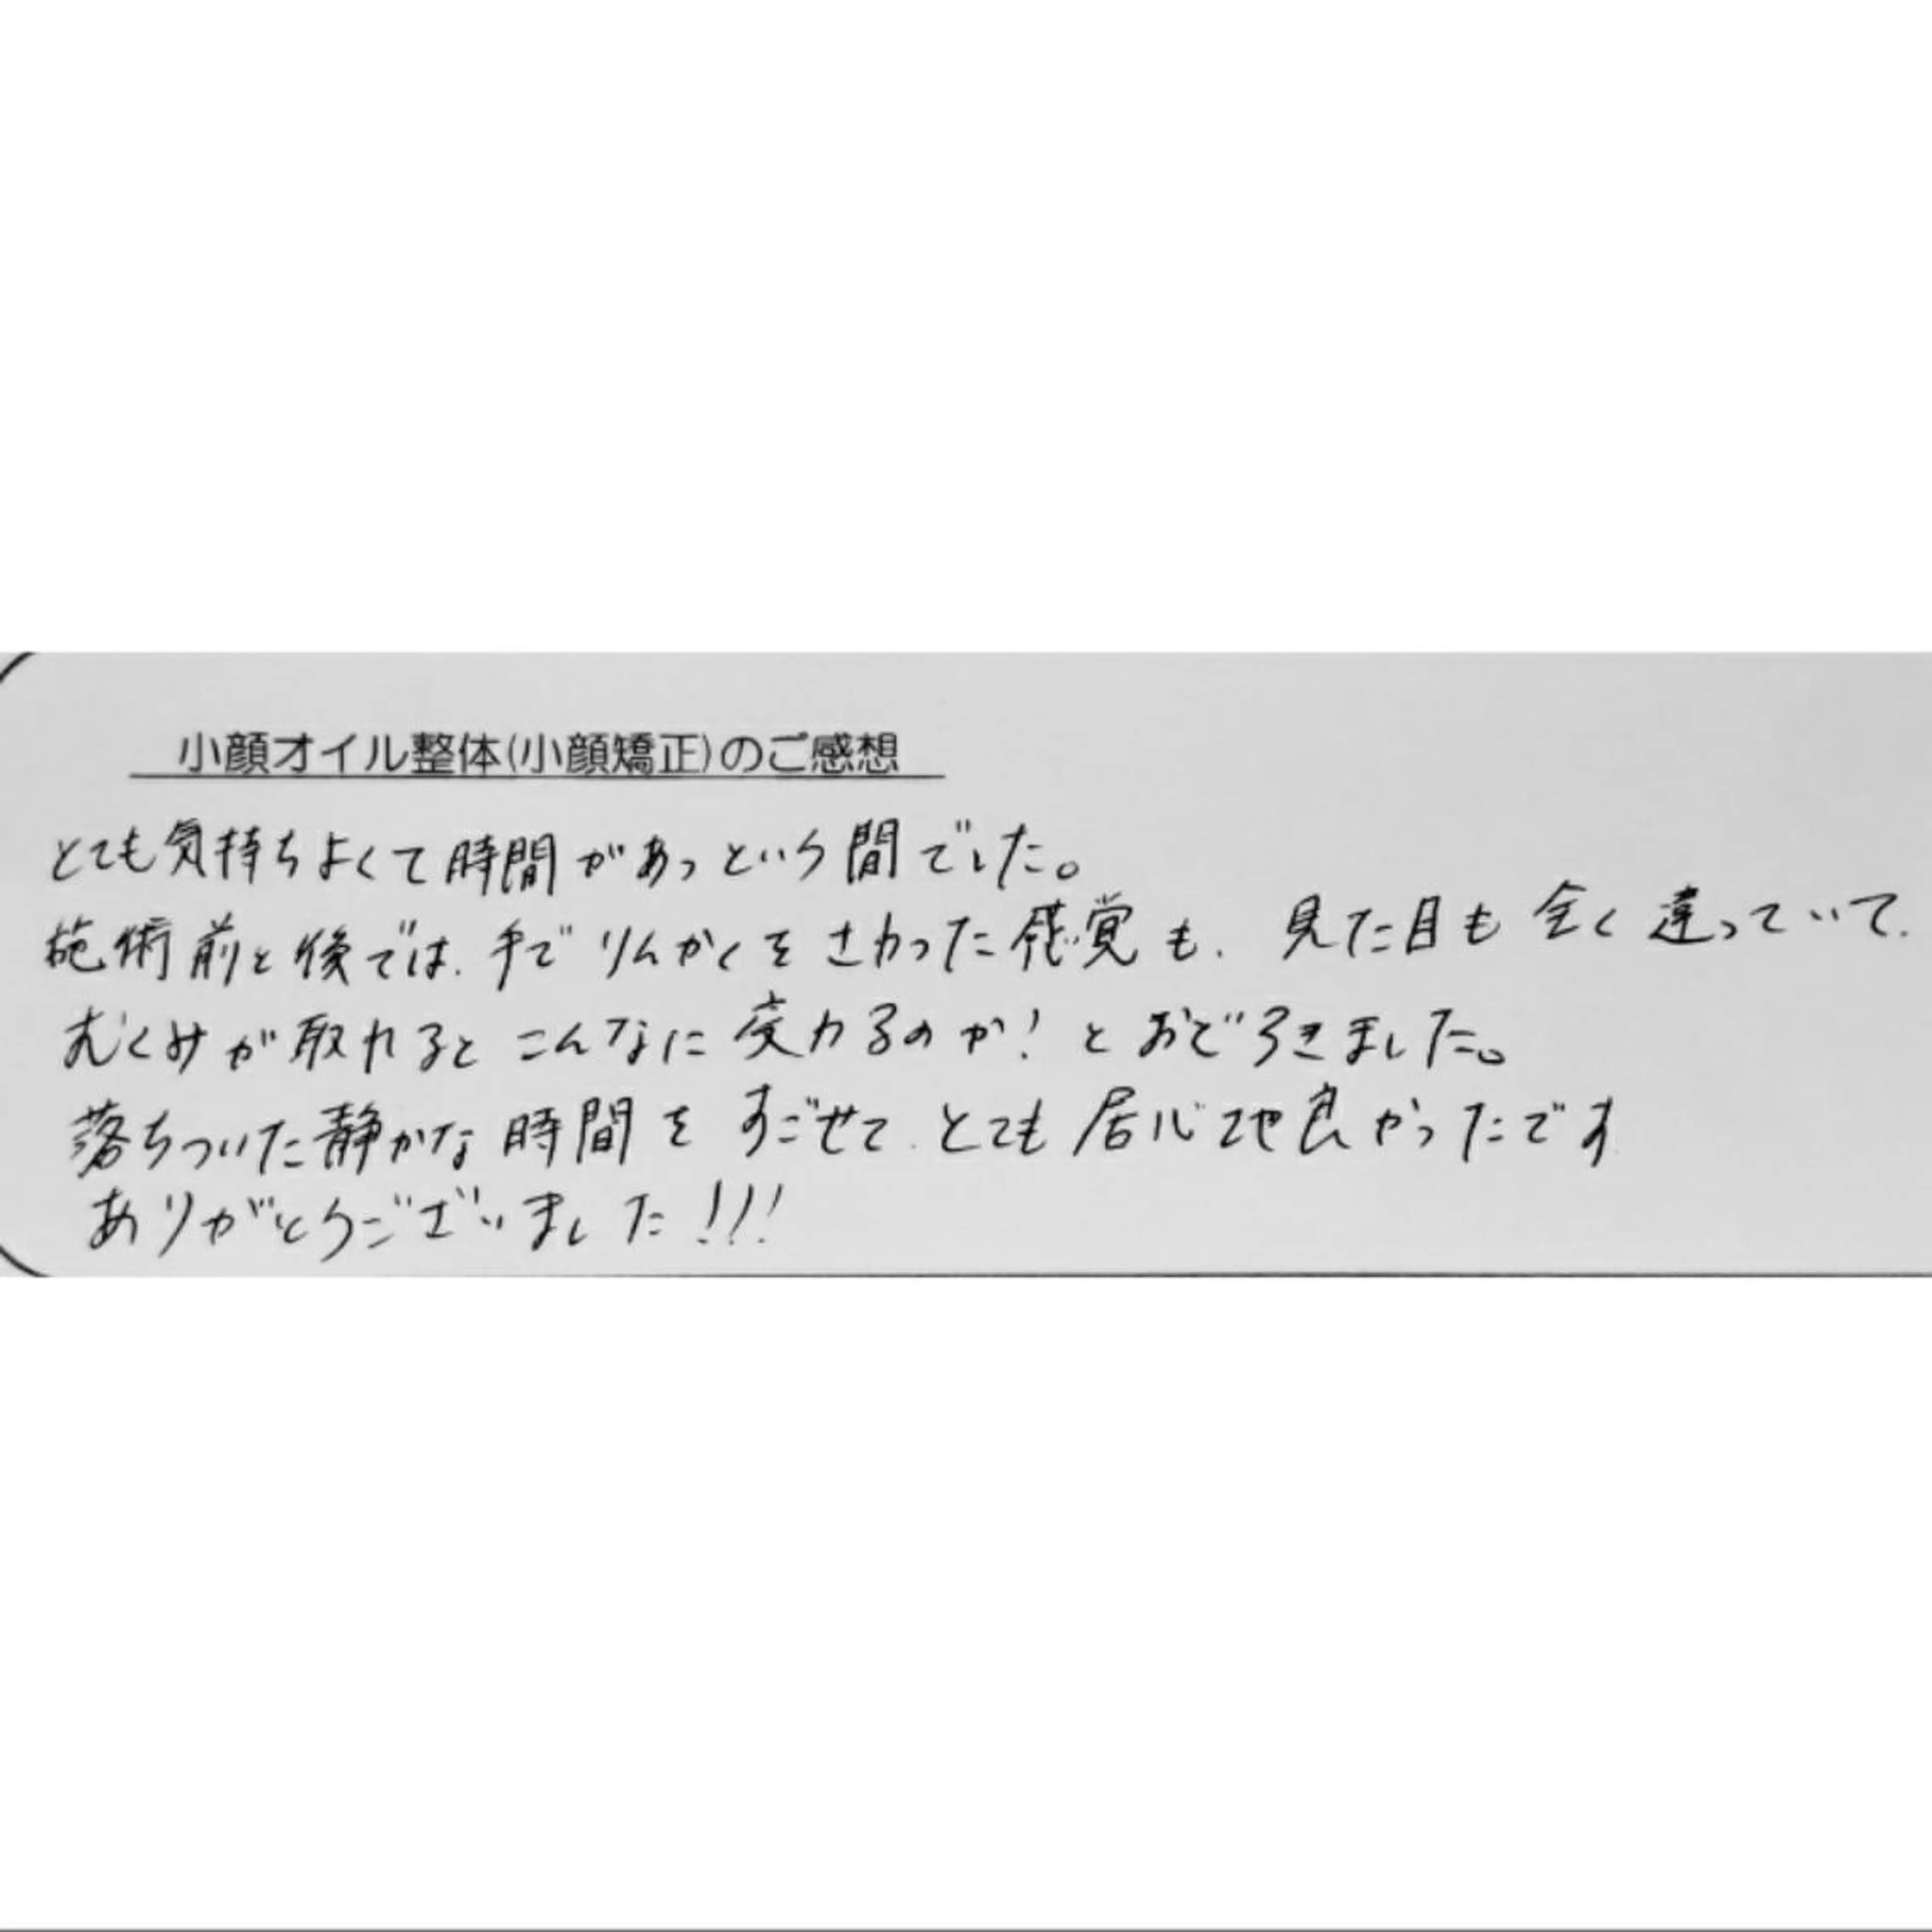 小顔オイル整体(小顔矯正)のご感想
とても気持ちよくて時間があっという間でした。
施術前と後では、手でりんかくをさわった感覚も、見た目も全く違っていて、
むくみが取れるとこんなに変わるのか!とおどろきました。
落ちついた静かな時間をすごせて、とても居心地良かったです
ありがとうございました!!!